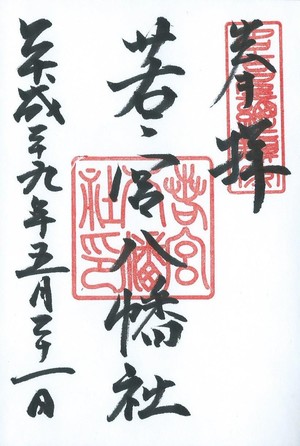 奉拝
若宮八幡社
若宮八幡社印
平成二十九年五月二十一日